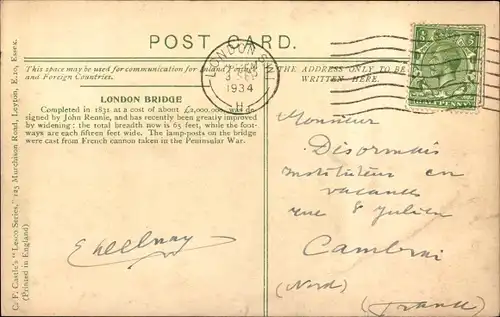 POST CARD.
This space may be used for communication for Inland Postage
and Foreign Countries.
THE ADDRESS ONLY TO BE
WRITTEN HERE.
LONDON BRIDGE
Completed in 1831 at a cost of about £2,000,000, was de-
signed by John Rennie, and has recently been greatly improved
by widening: the total breadth now is 65 feet, while the foot-
ways are each fifteen feet wide. The lamp-posts on the bridge
were cast from French cannon taken in the Peninsular War.
C. F. Castle's "Lesco Series," 125 Murchison Road, Leyton, E.10, Essex.
(Printed in England)
LONDON S.W.
1934
HALFPENNY
Monsieur
Désormais
instituteur en
vacances
rue St Julien
Cambrai
(Nord)
(France)